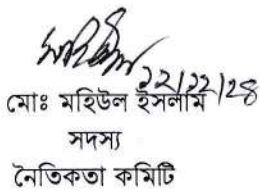 ২২/১২/২৪
মোঃ মহিউল ইসলাম
সদস্য
নৈতিকতা কমিটি